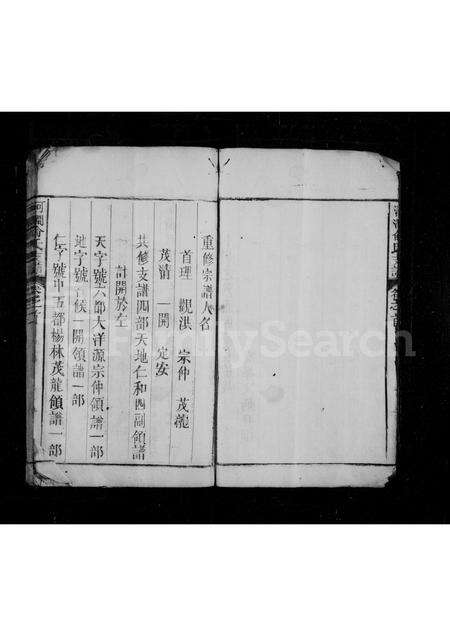 重修宗譜人名
首理 觀洪 宗仲 茂龍
茂清 一開 定安
共修支譜四部天地仁和四副領譜
計開於左
天字號六部大洋源宗仲領譜一部
地字號 候一開領譜一部
仁字號中五都楊林茂龍領譜一部
FamilySearch